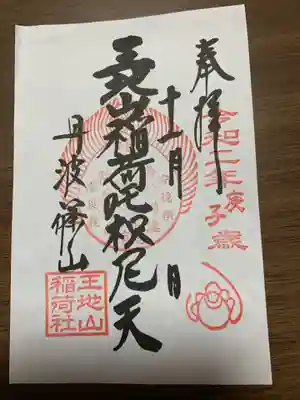 奉拝
令和二年庚子歳
十一月 日
王地山稲荷吒枳尼天
丹波篠山
王地山
稲荷社